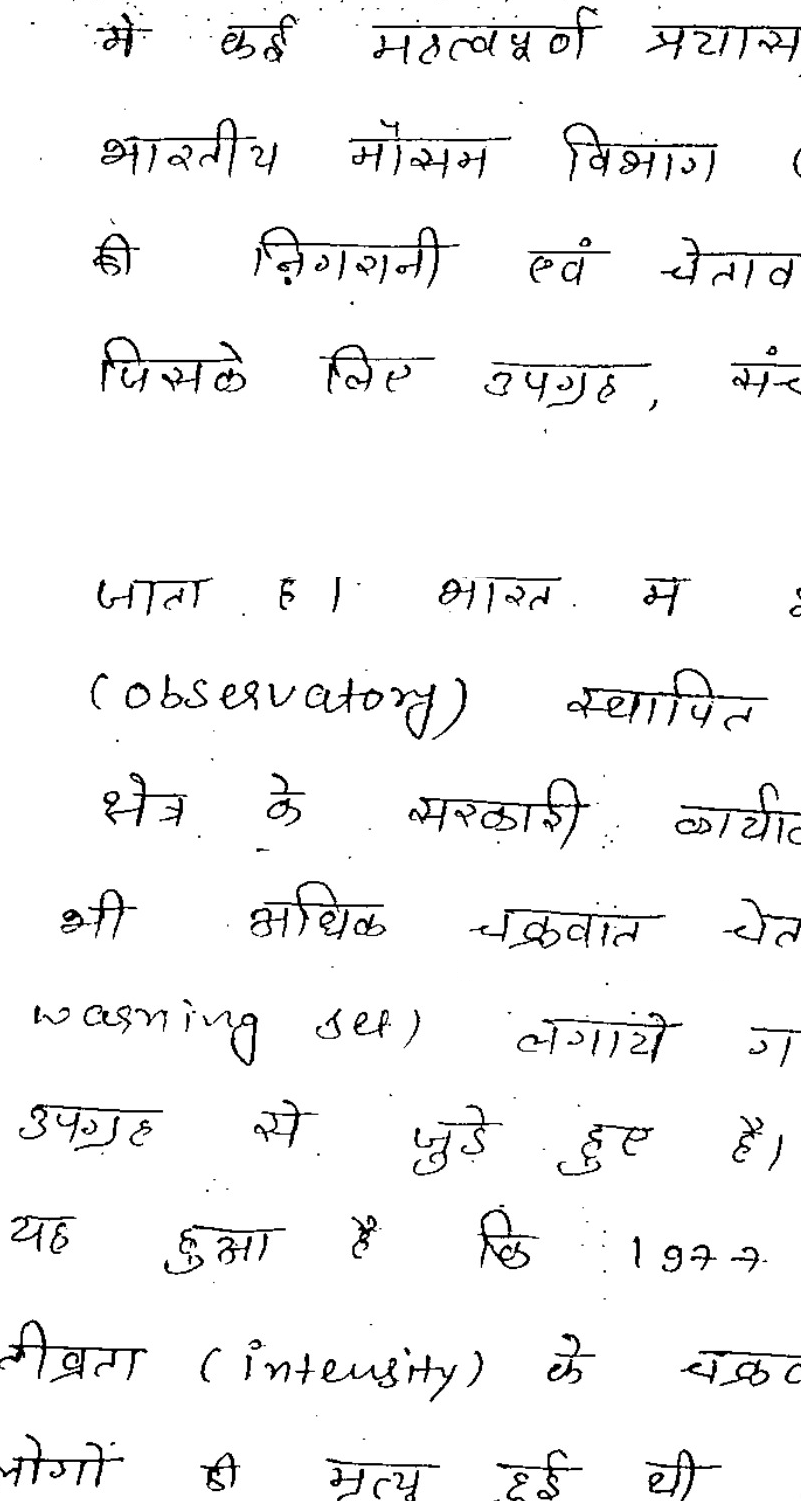 में कई महत्वपूर्ण प्रयास
भारतीय मौसम विभाग (
की निगरानी एवं चेताव
जिसके लिए उपग्रह, संच
जाता है। भारत में
(observatory) स्थापित
क्षेत्र के सरकारी कार्याल
भी अधिक चक्रवांत चेत
warning set) लगाये ग
उपग्रह से जुड़े हुए है।
यह हुआ है कि 1977
तीव्रता (intensity) के चक्रव
लोगों की मृत्यु हुई थी